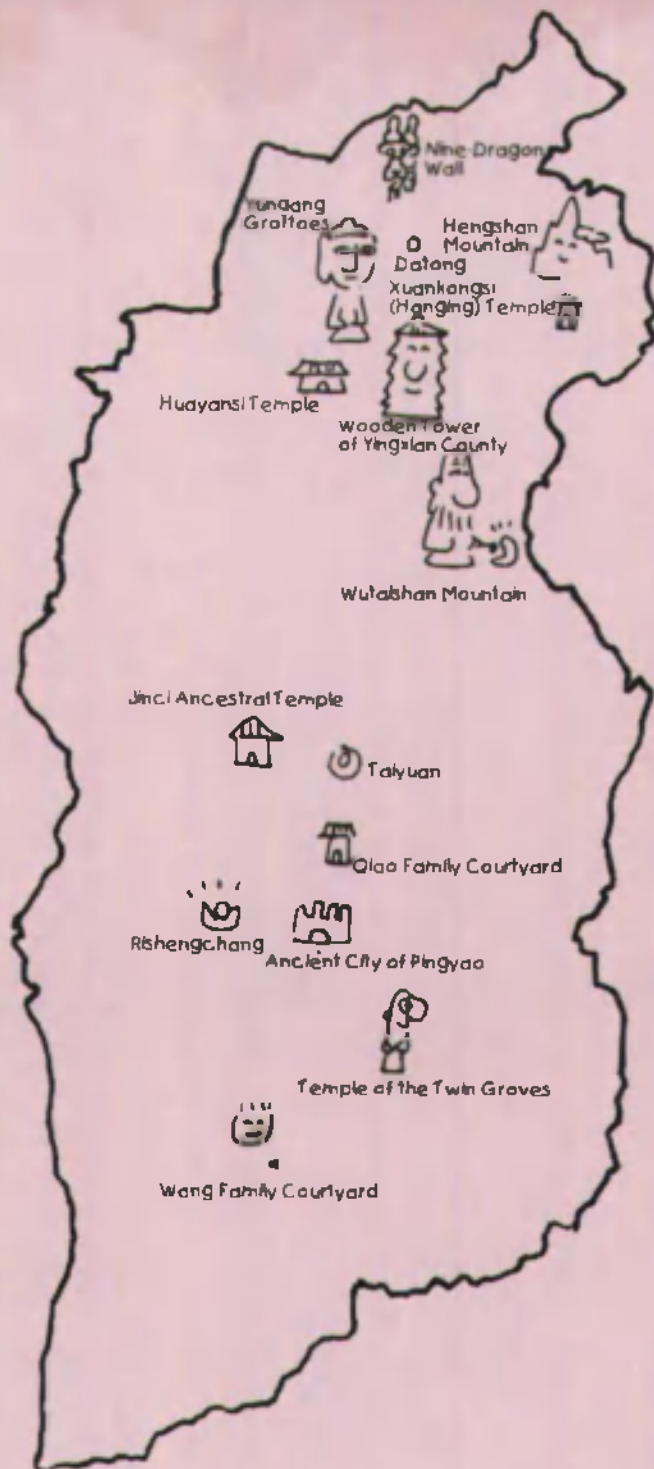 Nine-Dragon
Wall
Yungang
Grottoes
Hengshan
Mountain
Datong
Xuankongsi
(Hanging) Temple
Huayansi Temple
Wooden Tower
of Yingxian County
Wutaishan Mountain
Jinci Ancestral Temple
Taiyuan
Qiao Family Courtyard
Rishengchang
Ancient City of Pingyao
Temple of the Twin Groves
Wang Family Courtyard